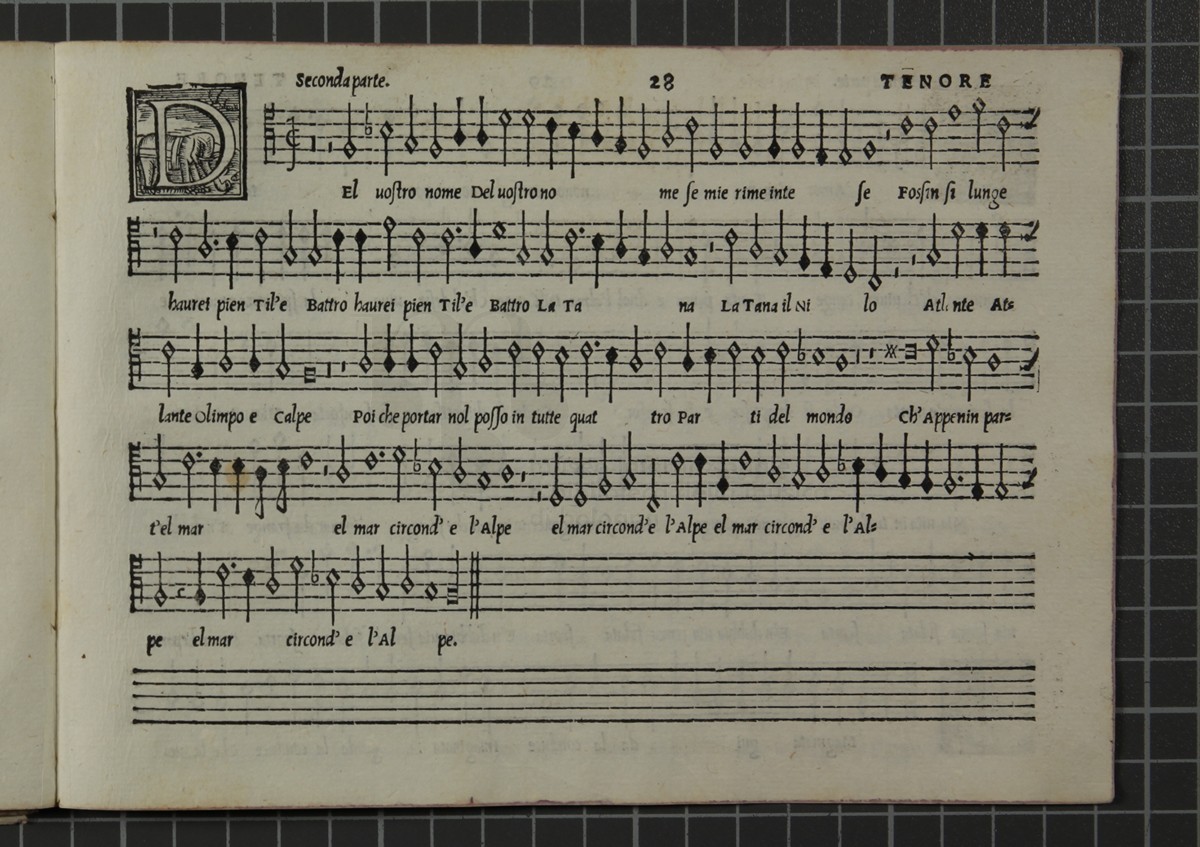 Seconda parte. 28 TENORE
D El uostro nome Del uostro no me se mie rime inte se Fossin si lunge
haurei pien Til'e Battro haurei pien Til'e Battro La Ta na La Tana il Ni lo Atlante At=
lante Olimpo e Calpe Poi che portar nol posso in tutte quat tro Par ti del mondo Ch'Appenin par=
t'el mar el mar circond' e l'Alpe el mar circond'e l'Alpe el mar circond' e l'Al=
pe el mar circond' e l'Al pe.